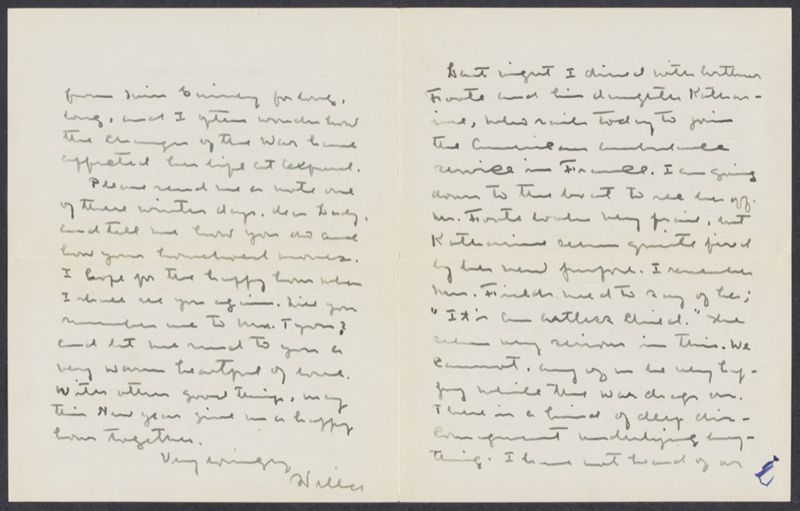 from Miss Guiney for long,
long, and I often wonder how
the changes of the War have
affected her life at Oxford.
Please send me a note one
of these winter days, dear Lady,
and tell me how you do and
how your household moves.
I hope for the happy hour when
I shall see you again. Will you
remember me to Mrs. Tyson?
and let me send to you a
very warm heartful of love.
With other good things, may
this New Year give us a happy
hour together.
Very lovingly
Willa
Last night I dined with Arthur
Foote and his daughter Kathar-
ine, who sails today to join
the American ambulance
service in France. I am going
down to the boat to see her off.
Mr. Foote looks very frail, but
Katharine seems quite fired
by her new purpose. I remember
Mrs. Fields used to say of her;
"It's an artless child." She
seems very serious in this. We
cannot, any of us be very hap-
py while this war drags on.
There is a kind of deep dis-
couragement underlying every-
thing. I have not heard of or